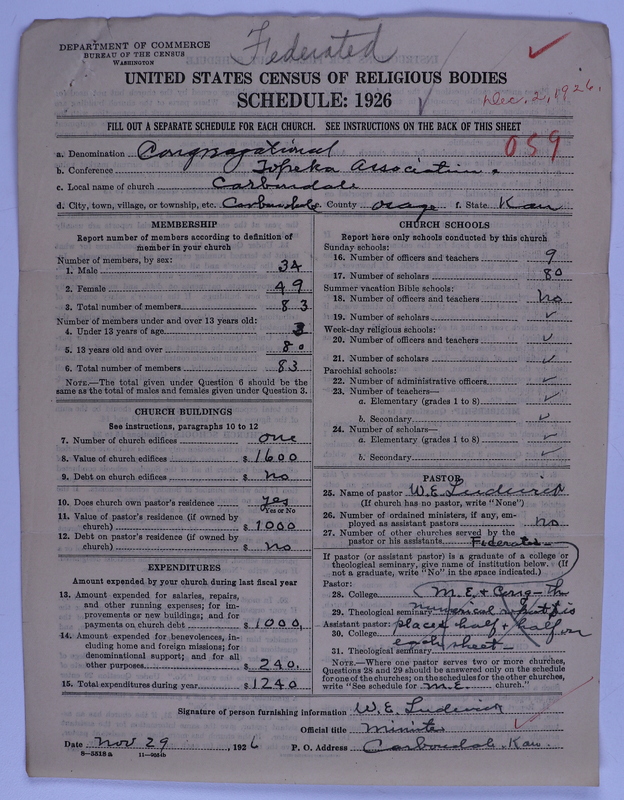 DEPARTMENT OF COMMERCE
BUREAU OF THE CENSUS
WASHINGTON
Federated
UNITED STATES CENSUS OF RELIGIOUS BODIES
SCHEDULE: 1926
Dec. 2, 1926.
FILL OUT A SEPARATE SCHEDULE FOR EACH CHURCH. SEE INSTRUCTIONS ON THE BACK OF THIS SHEET
059
a. Denomination Congragational
b. Conference Topeka Association.
c. Local name of church Carbondale
d. City, town, village, or township, etc. Carbondale County Osage f. State Kan
MEMBERSHIP
Report number of members according to definition of
member in your church
Number of members, by sex:
1. Male 34
2. Female 49
3. Total number of members 83
Number of members under and over 13 years old:
4. Under 13 years of age 3
5. 13 years old and over 80
6. Total number of members 83
NOTE.—The total given under Question 6 should be the
same as the total of males and females given under Question 3.
CHURCH BUILDINGS
See instructions, paragraphs 10 to 12
7. Number of church edifices one
8. Value of church edifices $ 1600
9. Debt on church edifices $ no
10. Does church own pastor's residence yes
Yes or No
11. Value of pastor's residence (if owned by
church) $ 1000
12. Debt on pastor's residence (if owned by
church) $ no
EXPENDITURES
Amount expended by your church during last fiscal year
13. Amount expended for salaries, repairs,
and other running expenses; for im-
provements or new buildings; and for
payments on church debt $ 1000,
14. Amount expended for benevolences, in-
cluding home and foreign missions; for
denominational support; and for all
other purposes $ 240.
15. Total expenditures during year $ 1240
CHURCH SCHOOLS
Report here only schools conducted by this church
Sunday schools:
16. Number of officers and teachers 9
17. Number of scholars 80
Summer vacation Bible schools:
18. Number of officers and teachers no
19. Number of scholars ✓
Week-day religious schools:
20. Number of officers and teachers ✓
21. Number of scholars ✓
Parochial schools:
22. Number of administrative officers ✓
23. Number of teachers—
a. Elementary (grades 1 to 8) ✓
b. Secondary ✓
24. Number of scholars—
a. Elementary (grades 1 to 8) ✓
b. Secondary ✓
PASTOR
25. Name of pastor W. E. Ludwick
(If church has no pastor, write "None")
26. Number of ordained ministers, if any, em-
ployed as assistant pastors no
27. Number of other churches served by the
pastor or his assistants Federates
If pastor (or assistant pastor) is a graduate of a college or
theological seminary, give name of institution below. (If
not a graduate, write "No" in the space indicated.)
Pastor:
28. College M. E. & Cong—
29. Theological seminary
Assistant pastor: placed half & half on
30. College
each sheet—
31. Theological seminary
NOTE.—Where one pastor serves two or more churches,
Questions 28 and 29 should be answered only on the schedule
for one of the churches; on the schedules for the other churches,
write "See schedule for M. E. church."
Signature of person furnishing information W. E. Ludwick
Official title Minister
Date Nov 29, 1926 P. O. Address Carbondale Kan.
8—5518 a 11—9554b